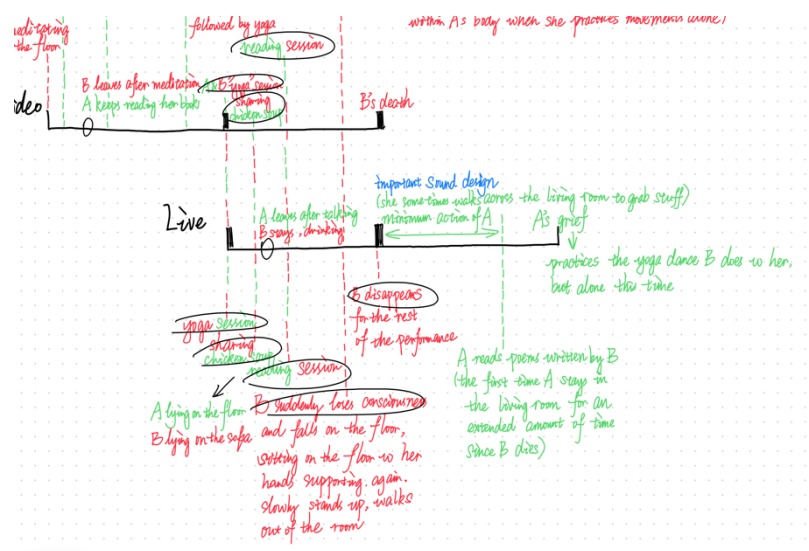 meditating
the floor
followed by yoga
reading session
within A's body when she practices movements alone)
B leaves after meditation
A keeps reading her books
A & B "yoga" session
sharing
chicken soup
B's death
Video
Important Sound design
(she sometimes walks across the living room to grab stuff)
minimum action of A
A's grief
Live
A leaves after talking
B stays, drinking
practices the yoga dance B does w her,
but alone this time
B disappears
for the rest
of the performance
yoga session
sharing
chicken soup
reading session
A lying on the floor
B lying on the sofa
B suddenly loses consciousness
and falls on the floor,
sitting on the floor w her
hands supporting. again.
slowly stands up, walks
out of the room
A reads poems written by B
(the first time A stays in
the living room for an
extended amount of time
since B dies)